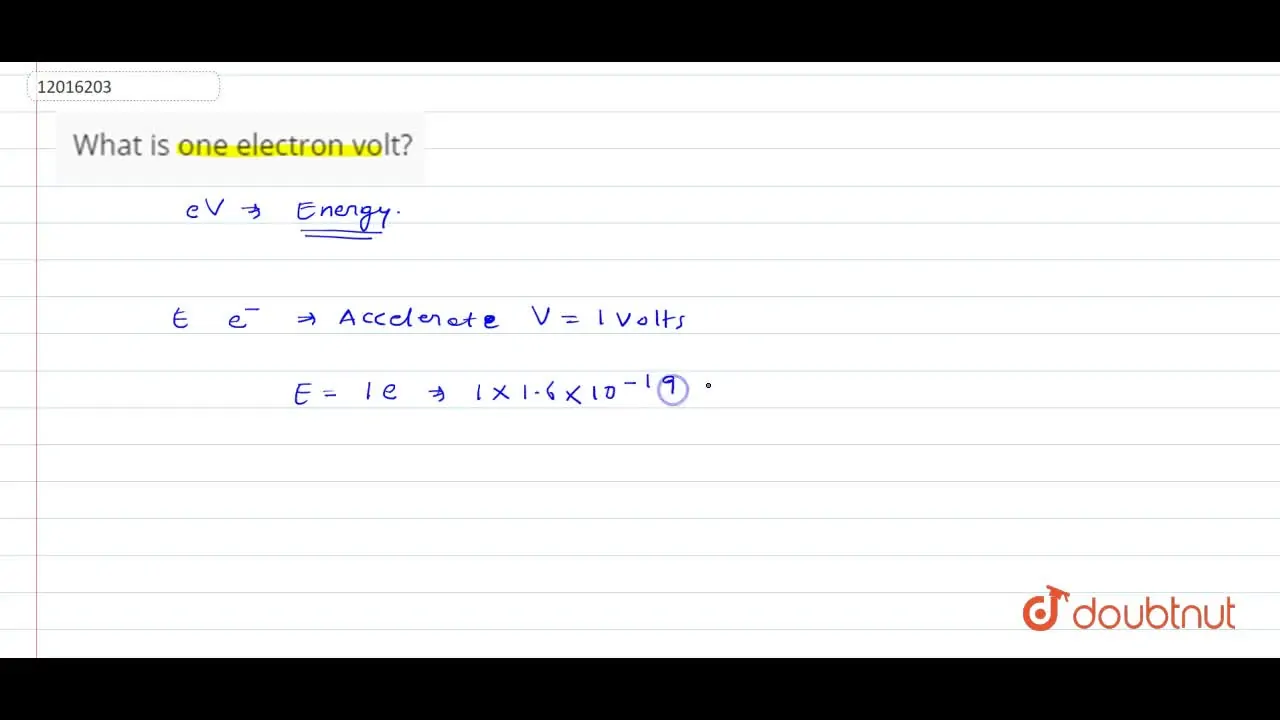 12016203
What is one electron volt?
eV → Energy.
E e⁻ ⇒ Accelerate V = 1 Volts
E = 1e → 1 × 1.6 × 10⁻¹⁹
doubtnut